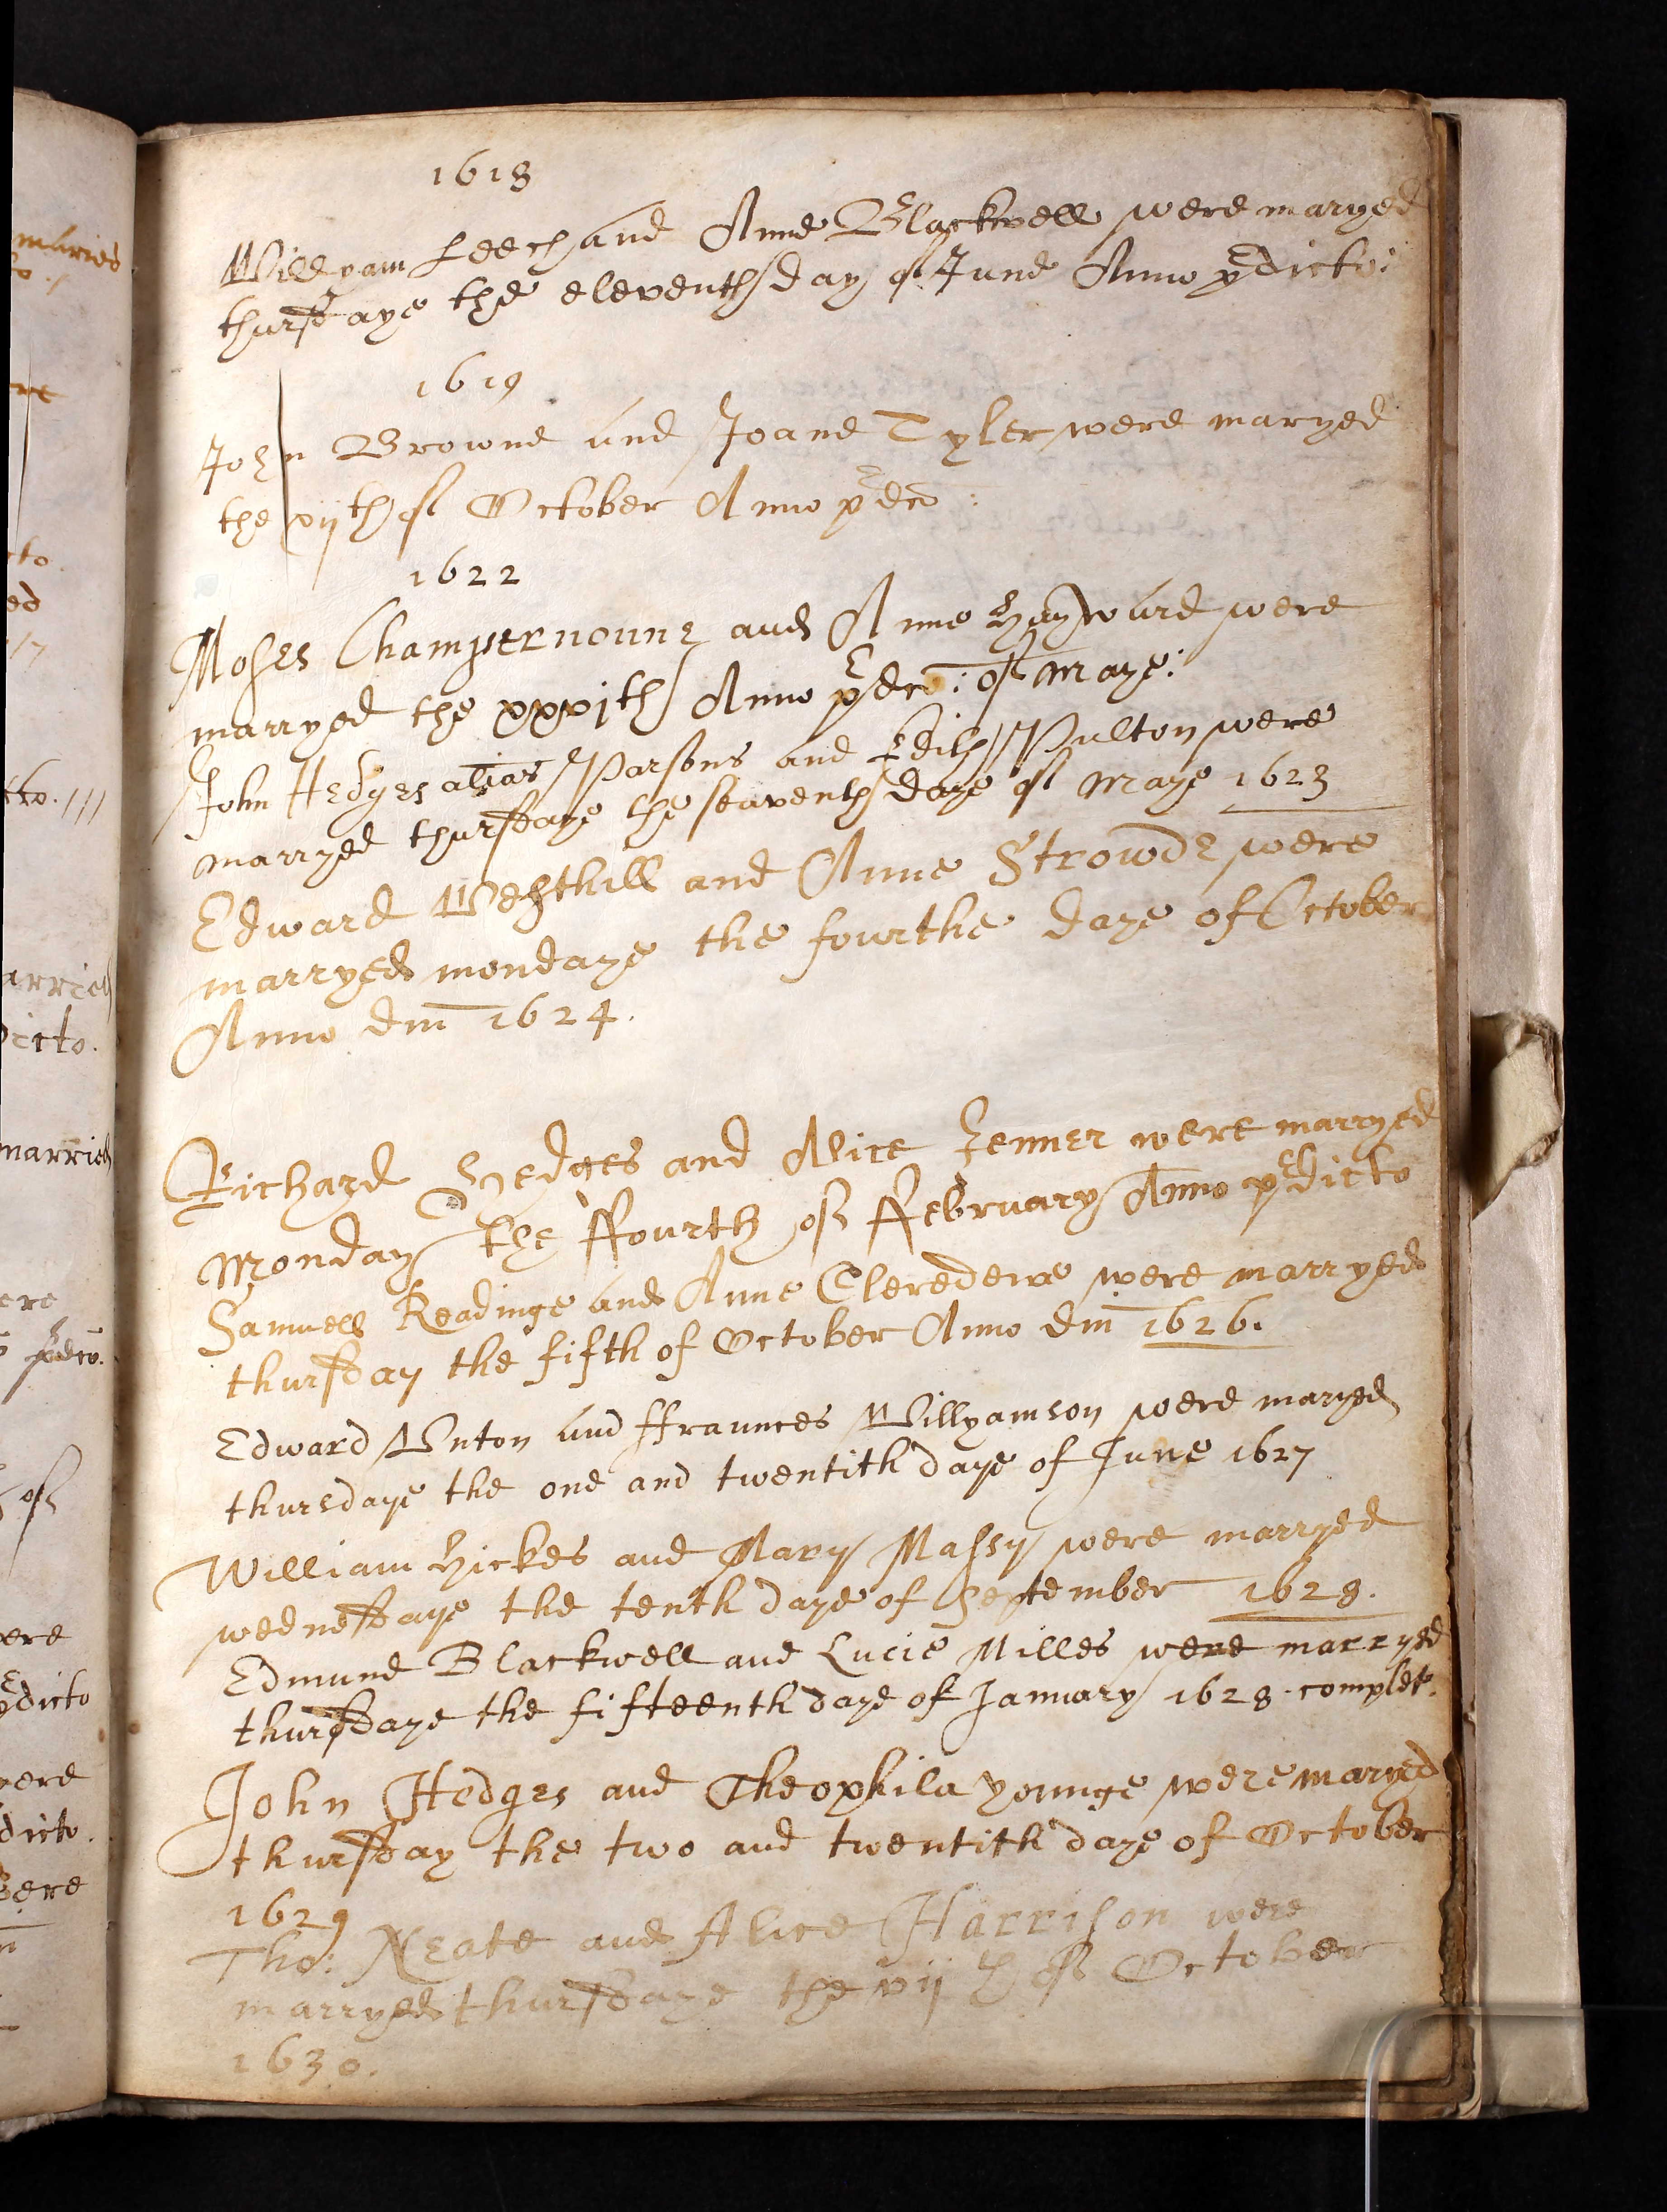 1618
Willyam Leech and Anne Blackwell were maryed
thursdaye the eleventh day of June Anno pʳdicto:
1619
John Browne and Joane Tyler were maryed
the xijth of October Anno pʳdco:
1622
Moses Champernoune and Anne Hayward were
marryed the xxxjth Anno pʳdco: of Maye:
John Hedges alias Parsons and Edith Pulton were
marryed thursdaye the seaventh daye of Maye 1623
Edward Westhill and Anne Strowde were
marryed mondaye the fourthe daye of October
Anno dm̄ 1624.
Richard Hedges and Alice Jenner were marryed
Monday the ffourth of ffebruary Anno pʳdicto
Samuell Readinge and Anne Cleredewe were marryed
thursday the fifth of October Anno dm̄ 1626.
Edward Unton and ffraunces Willyamson were maryed
thursdaye the one and twentith daye of June 1627
William Hickes and Mary Massy were marryed
wednesdaye the tenth daye of September 1628.
Edmund Blackwell and Lucie Milles were marryed
thursdaye the fifteenth daye of January 1628. complet.
John Hedges and Theophila Younge were maryed
thursday the two and twentith daye of October
1629
Tho: Neate and Alice Harrison were
marryed thursdaye the vij th of October
1630.
arried
married